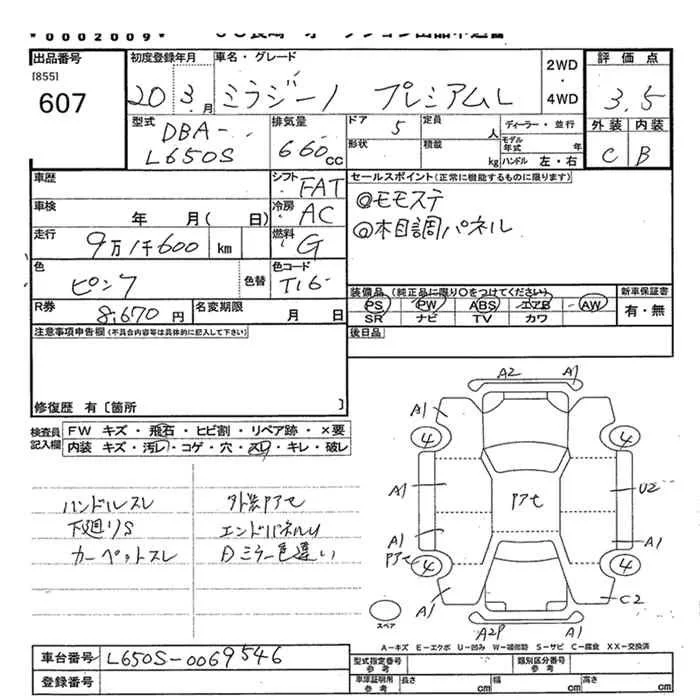 *0002009*
出品番号
[855]
607
初度登録年月
20年3月
車名・グレード
ミラジーノ プレミアムL
2WD
・
4WD
評価点
3.5
外装 内装
C B
型式
DBA-
L650S
排気量
660cc
ドア 5
定員 人
形状
積載 kg
ディーラー・並行
モデル年式 年
ハンドル 左・右
車歴
シフト FAT
車検 年 月( 日)
冷房 AC
走行 9万1千600 km
燃料 G
色 ピンク
色替
色コード T16
R券 8,670円
名変期限 月 日
セールスポイント(正常に機能するものに限ります)
◎モモステ
◎木目調パネル
装備品(純正品に限り○をつけてください)
PS PW ABS エアB AW
SR ナビ TV カワ
新車保証書
有・無
後日品
注意事項申告欄(不具合内容等は具体的に記入して下さい)
修復歴 有[箇所 ]
検査員記入欄
FW キズ・飛石・ヒビ割・リペア跡・×要
内装 キズ・汚レ・コゲ・穴・スレ・キレ・破レ
ハンドルスレ
下廻りS
カーペットスレ
外装アセ
エンドパネルU
Dミラー色違い
A2 A1
A1
4 4
A1 アセ U2
A1 A1
アセ
4 4
A1 C2
A2P A1
スペア
A-キズ E-エクボ U-凹み W-補修跡 S-サビ C-腐食 XX-交換済
車台番号 L650S-0069546
登録番号
型式指定番号 参考
類別区分番号 参考
車庫証明用 参考
長さ cm 幅 cm 高さ cm